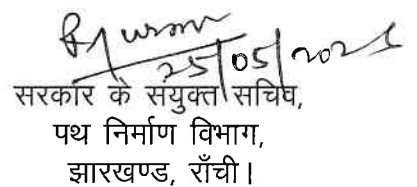 25/05/2025
सरकार के संयुक्त सचिव,
पथ निर्माण विभाग,
झारखण्ड, राँची।